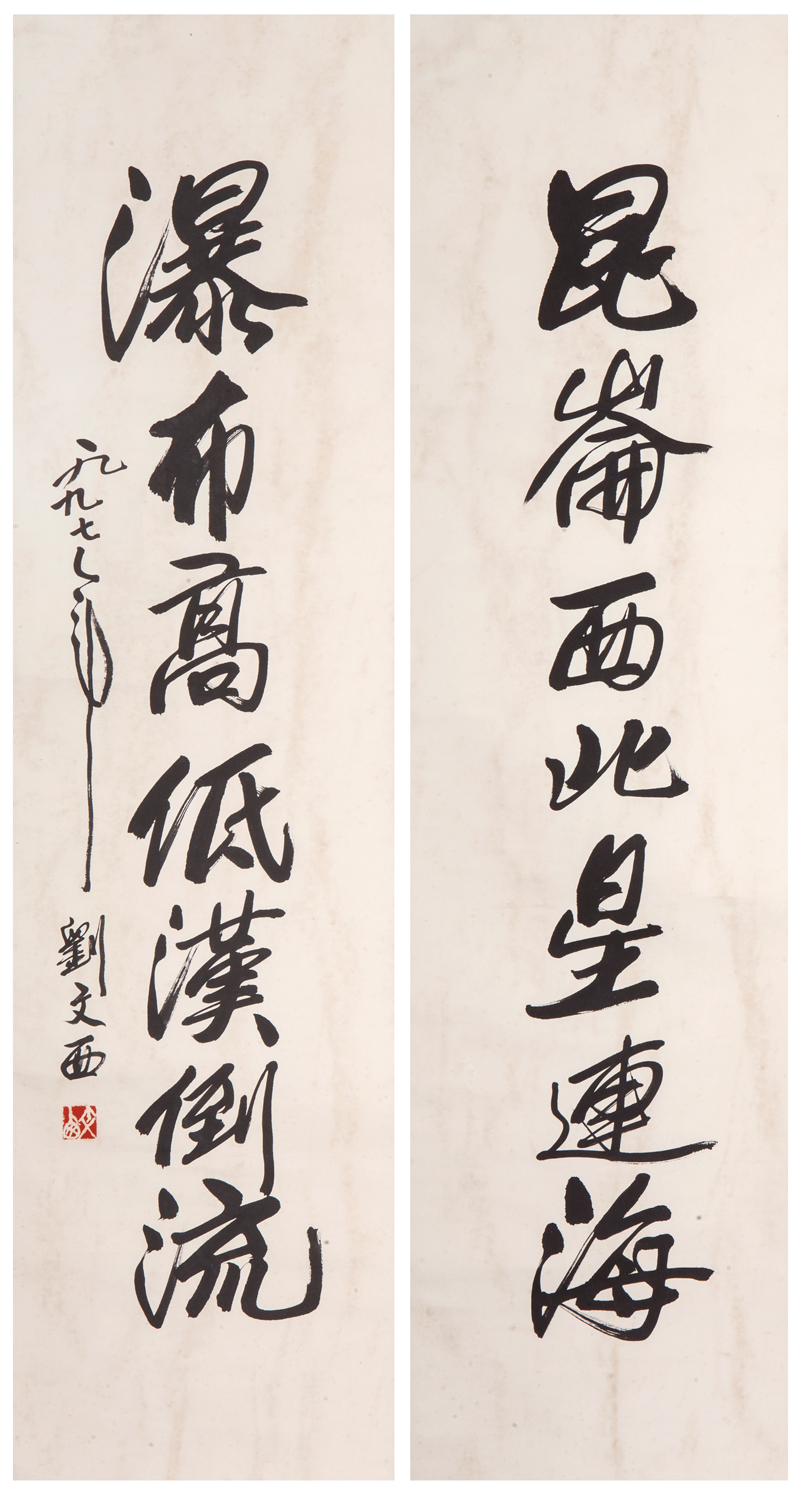 昆崙西北星連海
瀑布高低漢倒流
一九九七年
劉文西
文西